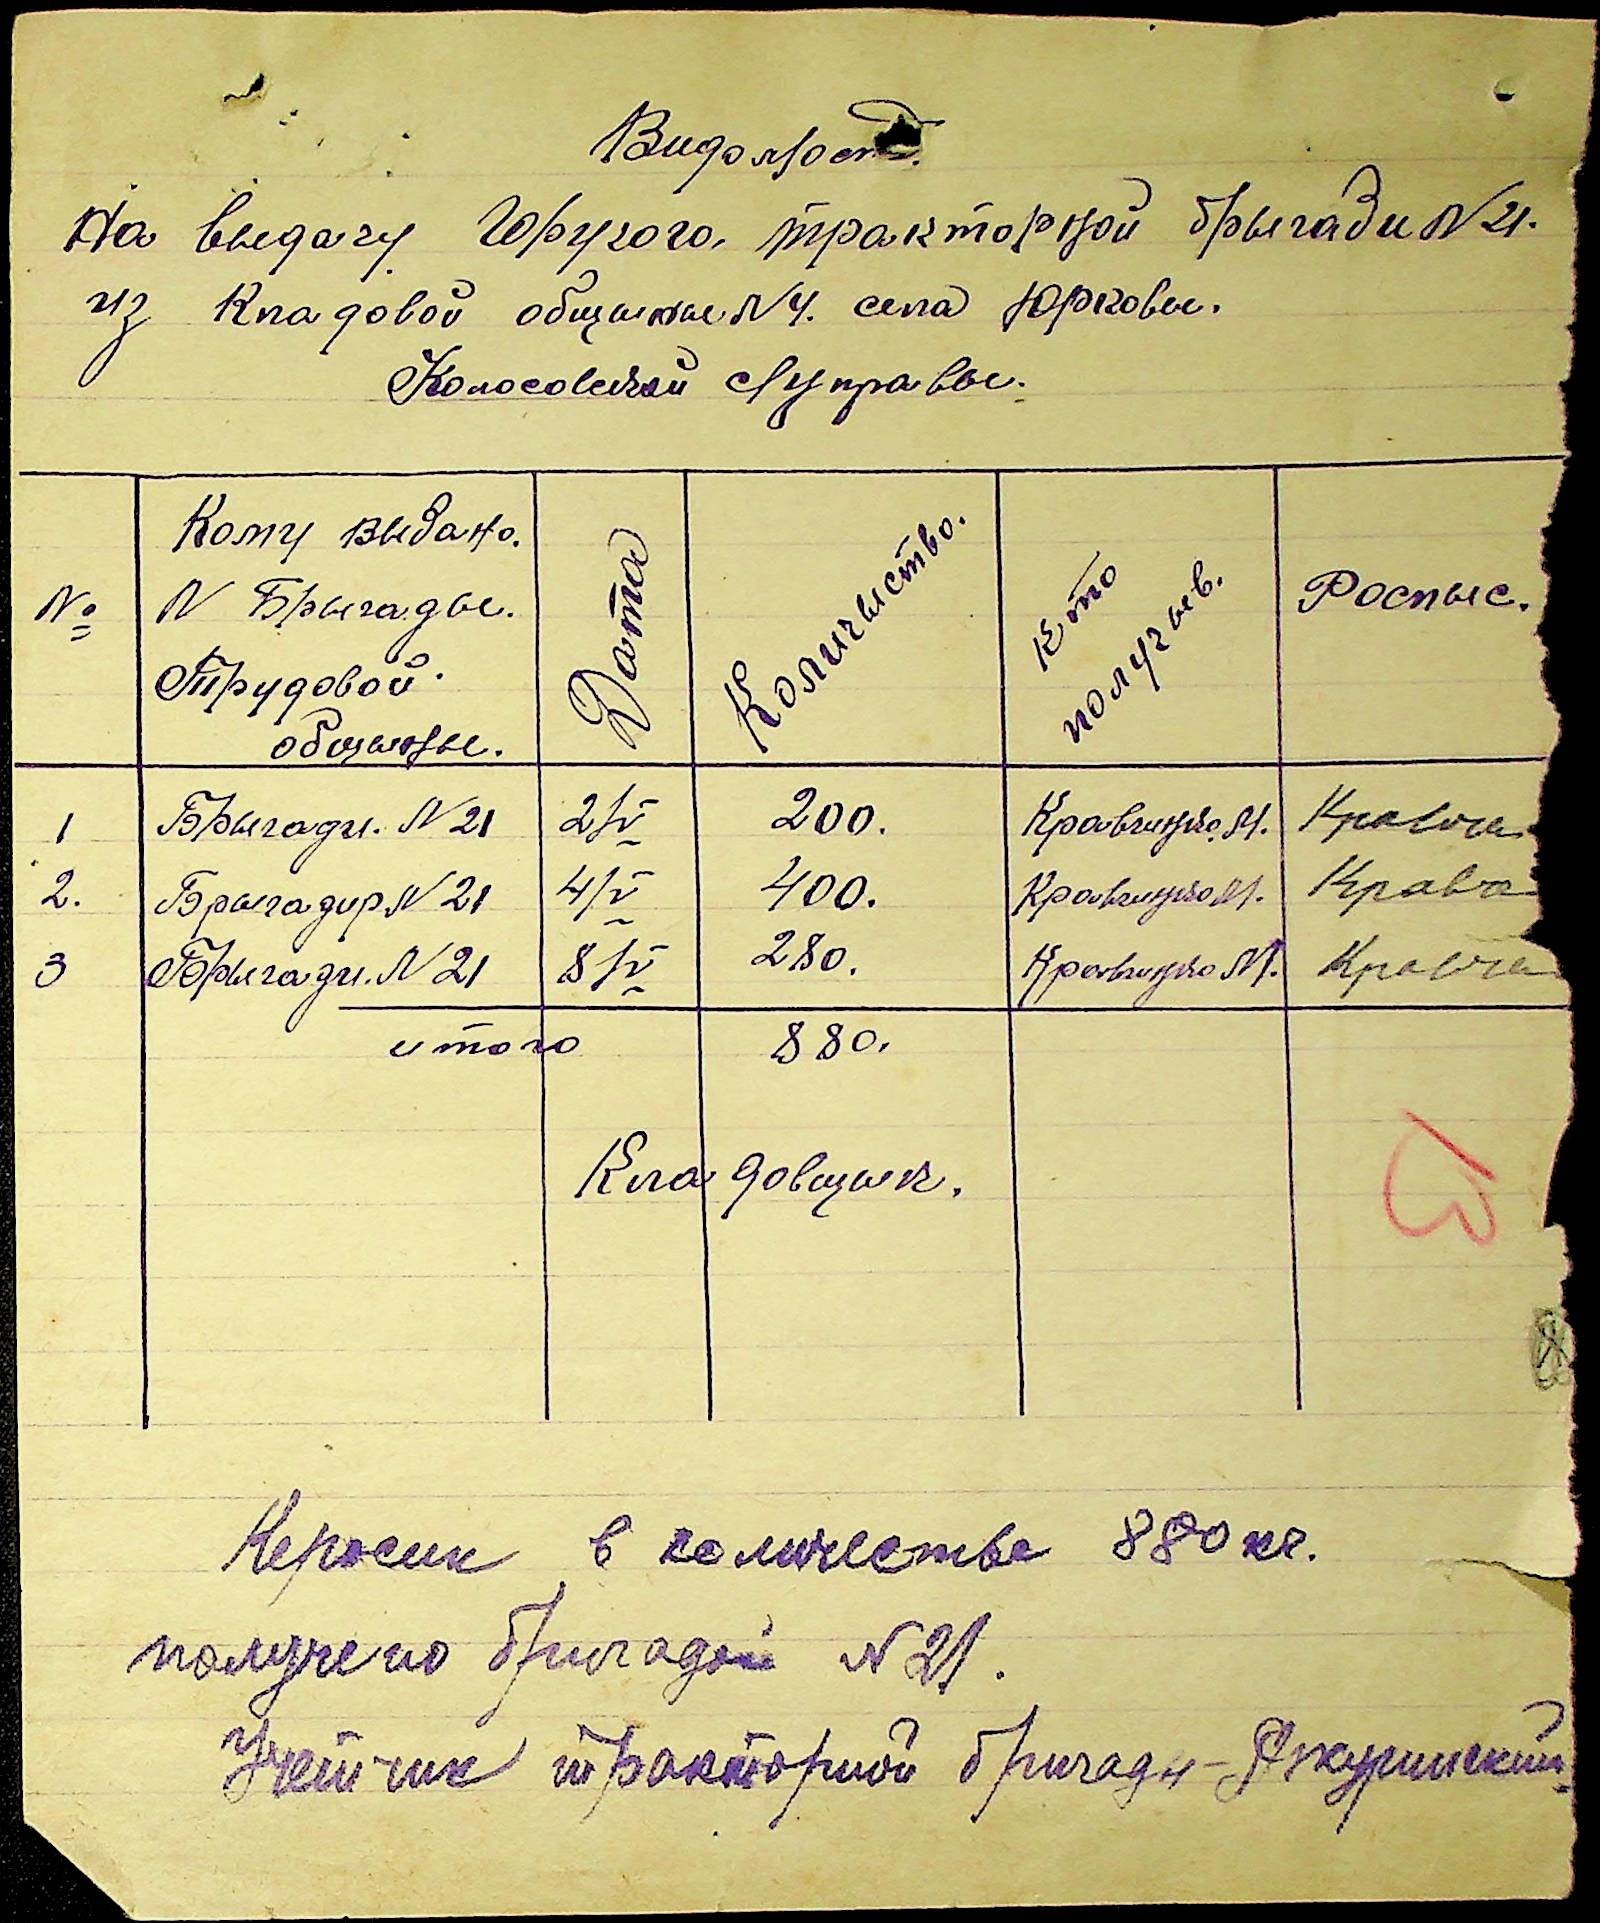 Видомост.
На выдачу Горючого, тракторной брыгади N 21.
из Кладовой общыны N 4. села Юрковы.
Колосовской управы.
№
Кому выдано.
N Брыгады.
Трудовой
общыны.
Дата
Количыство.
Кто
получыв.
Роспыс.
1 Брыгади. N 21 2/V 200. Кравченко М. Кравче
2. Брыгадир N 21 4/V 400. Кравченко М. Кравч
3 Брыгади. N 21 8/V 280. Кравченко М. Кравче
итого 880.
Кладовщык.
13
Керосин в количестве 880 кг.
получено бригадой N 21.
Учетчик тракторной бригады - Джуринский